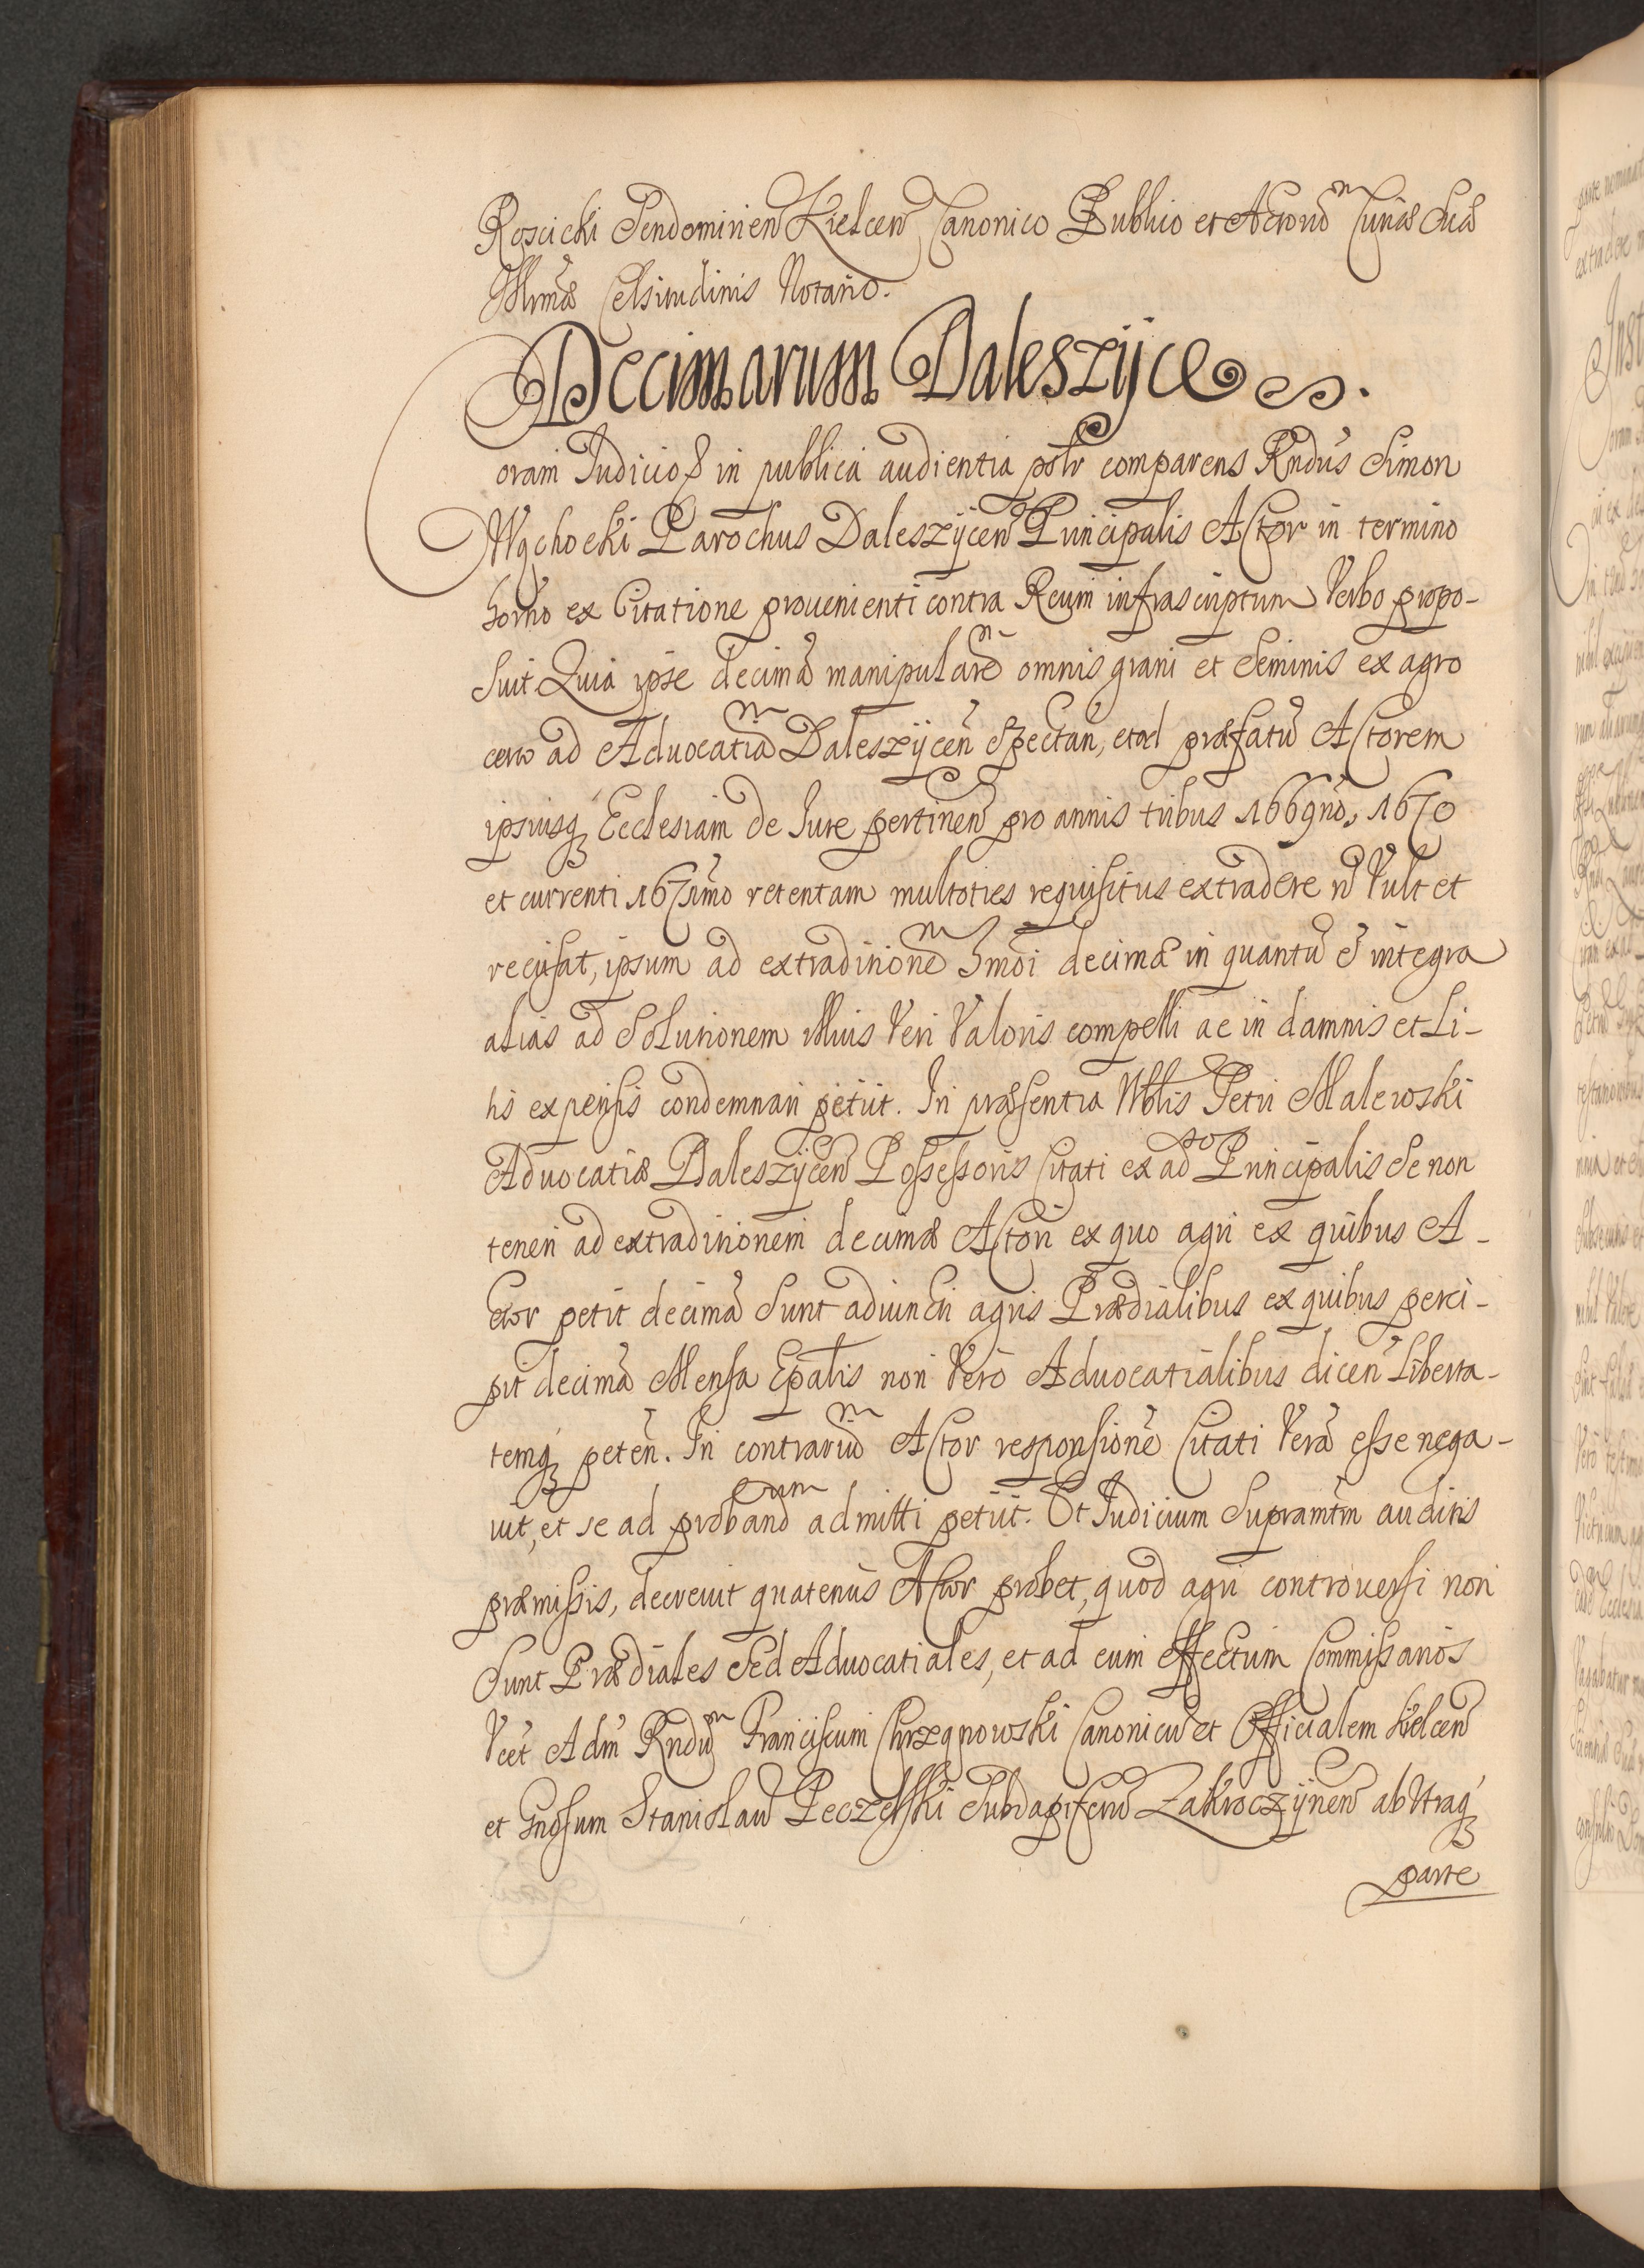 Roscicki Sendomirien Kielcen Canonico Publico et Actorũ Curiæ Suæ
Illrmæ Celsitudinis Notario.
Decimarum Daleszÿce
Coram Judicio & in publica audientia pnlr comparens Rndus Simon
Wąchocki Parochus Daleszÿcen Principalis Actor in termino
horno ex Citatione prouenienti contra Reum infrascriptum Verbo propo-
suit Quia ipse decimã manipularẽ omnis grani et Seminis ex agro
certo ad Aduocatiã Daleszÿcen Spectan, et ad præfatũ Actorem
ipsiusq Ecclesiam de Jure pertinen pro annis tribus 1669no, 1670
et currenti 1671mo retentam multoties requisitus extradere ñ Vult et
recusat, ipsum ad extraditionẽ hmõi decimæ in quantũ ẽ integra
alias ad Solutionem illius Veri Valoris compelli ac in damnis et Li-
tis expensis condemnari petiit. In præsentia Nblis Petri Malewski
Aduocatiæ Daleszÿcen Possessoris Citati ex adso Principalis Se non
teneri ad extraditionem decimæ Actori ex quo agri ex quibus A-
ctor petit decimã Sunt adiuncti agris Prædialibus ex quibus perci-
pit decimã Mensa Epalis non Vero Aduocatialibus dicen Liberta-
temq peten. In contrariũ Actor responsionẽ Citati Verã esse nega-
uit, et se ad proband admitti petiit. Et Judicium Supramtm auditis
præmissis, decreuit quatenus Actor probet, quod agri controuersi non
Sunt Prædiales Sed Aduocatiales, et ad eum effectum Commissarios
Vcet Adm Rndũ Franciscum Chrząnowski Canonicũ et Officialem Kielcen
et Gnosum Stanislaũ Peczelski Subdapiferũ Zakroczÿnen ab Vtraq
parte